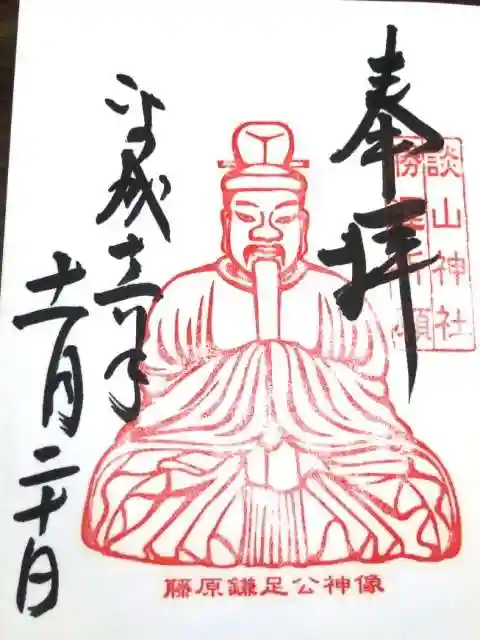 奉拝
談山神社
平成年
十一月二十日
藤原鎌足公神像